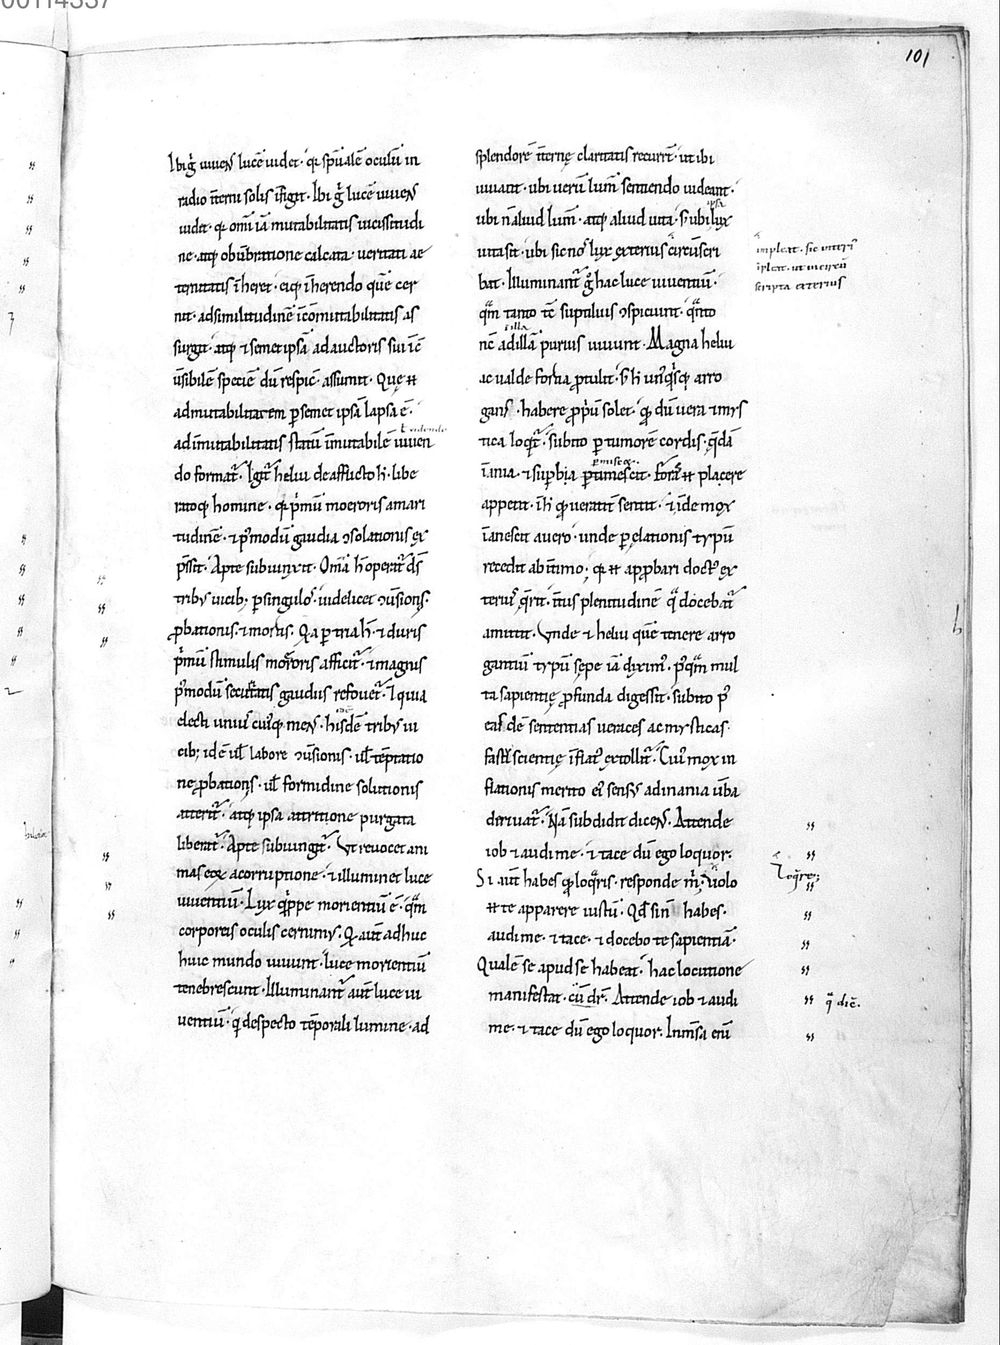 101
Ibi g̊ uiuens lucē uidet· q̇ sp̄ualē oculū in
radio īterni solis īfigit· Ibi g̊ lucē uiuens
uidet· q̇ om̄i iā mutabilitatis uicissitudi
ne· atq; obūbratione calcata· ueritati ae
ternitatis īheret· eiq; īherendo quē cer
nit· ad similitudinē īcōmutabilitatis as
surgit· atq; ⁊ semet ipsā ad auctoris sui īc̄
ūsibilē speciē dū respic̄· assumit· Que ⁊
ad mutabilitatem ꝑ semet ipsā lapsa ē·
ad īmutabilitatis statū īmutabilē uiuen
ł uidendo
do format᷑· Igit᷑ heliu de afflicto h̄· libe
ratoq; homine· q̇ p̄mū moeroris amari
tudinē· ⁊ pꝰmodū gaudia ɔsolationis ex
p̄ssit· Apte subiunxit· Om̄ia h̄ operat᷑ ds̄
tribꝰ uicibꝫ ꝑ singulos· uidelicet ɔūsionis·
ꝓbationis· ⁊ mortis· Q̇a ꝑ tria h̄· ⁊ duris
p̄mū stimulis moeroris afficit᷑· ⁊ magnis
pꝰmodū securitatis gaudiis refouet᷑· Et quia
electi uniuscuiusq; mens· his dē tribꝰ ui
cibꝫ idē uł labore ɔūsionis· uł tēptatio
ne ꝓbationis· uł formidine solutionis
atterit᷑· atq; ipsa attritione purgata
liberat᷑· Apte subiungit᷑· Vt reuocet ani
mas eoꝝ a corruptione· ⁊ illuminet luce
uiuentiū· Lux q̇ppe morientiū ē· q̄m
corporeis oculis cernimꝰ· Q̇ aut̄ adhuc
huic mundo uiuunt· luce morientiū
tenebrescunt· Illuminant᷑ aut̄ luce ui
uentiū· q̇ despecto tēporali lumine· ad
splendorē īternę claritatis recurrt̄· ut ibi
uiuant· ubi uerū lum̄ sentiendo uideant·
ubi n̄ aliud lum̄· atq; aliud uita· s; ubi lux
ipsa
uita sit· ubi sic nos lux exterius circūscri
bat· Illuminant᷑ g̊ hac luce uiuentiū·
q̄m tanto tc̄ suptilius ɔspiciunt· q̄nto
illa
nc̄ ad illā purius uiuunt· Magna heliu
ac ualde fortia ꝓtulit· s; h̄ unꝰq̇sq; arro
gans· habere ꝓpriū solet· q̇ dū uera ⁊ mys
tica loq̇t᷑· subito ꝑ tumorē cordis· q̄dā
īania· ⁊ suꝑbia ꝑtimescit·
ꝑmiscet·
appetit· īde mox
īanescit a uero· unde ꝑ elationis typū
recedit ab īntimo·
amittit· Vnde ⁊ heliu quē tenere arro
gantiū typū sepe iā diximꝰ· pꝰq̄m mul
ta sapientię ꝓfunda digessit· subito pꝰ
easdē sententias ueraces ac mysticas·
fastu scientię īflatꝰ extollit᷑· Cuiꝰ mox in
flationis merito eiꝰ sensꝰ ad inania ūba
deriuat᷑· Nā subdidit dicens· Attende
iob ⁊ audi me· ⁊ tace dū ego loquor·
Si aut̄ habes q̇ loq̇ris· responde m̄· uolo
⁊ te apparere iustū· Qd̄ si n̄ habes·
audi me· ⁊ tace· ⁊ docebo te sapientiā·
Qualē se apud se habeat· hac locutione
manifestat· cū dr̄· Attende iob ⁊ audi
me· ⁊ tace dū ego loquor· Inm̄sa enī
impleat· sic interi
īpleat· ut
scripta exterius
loq̇re;
q̄ dic̄·